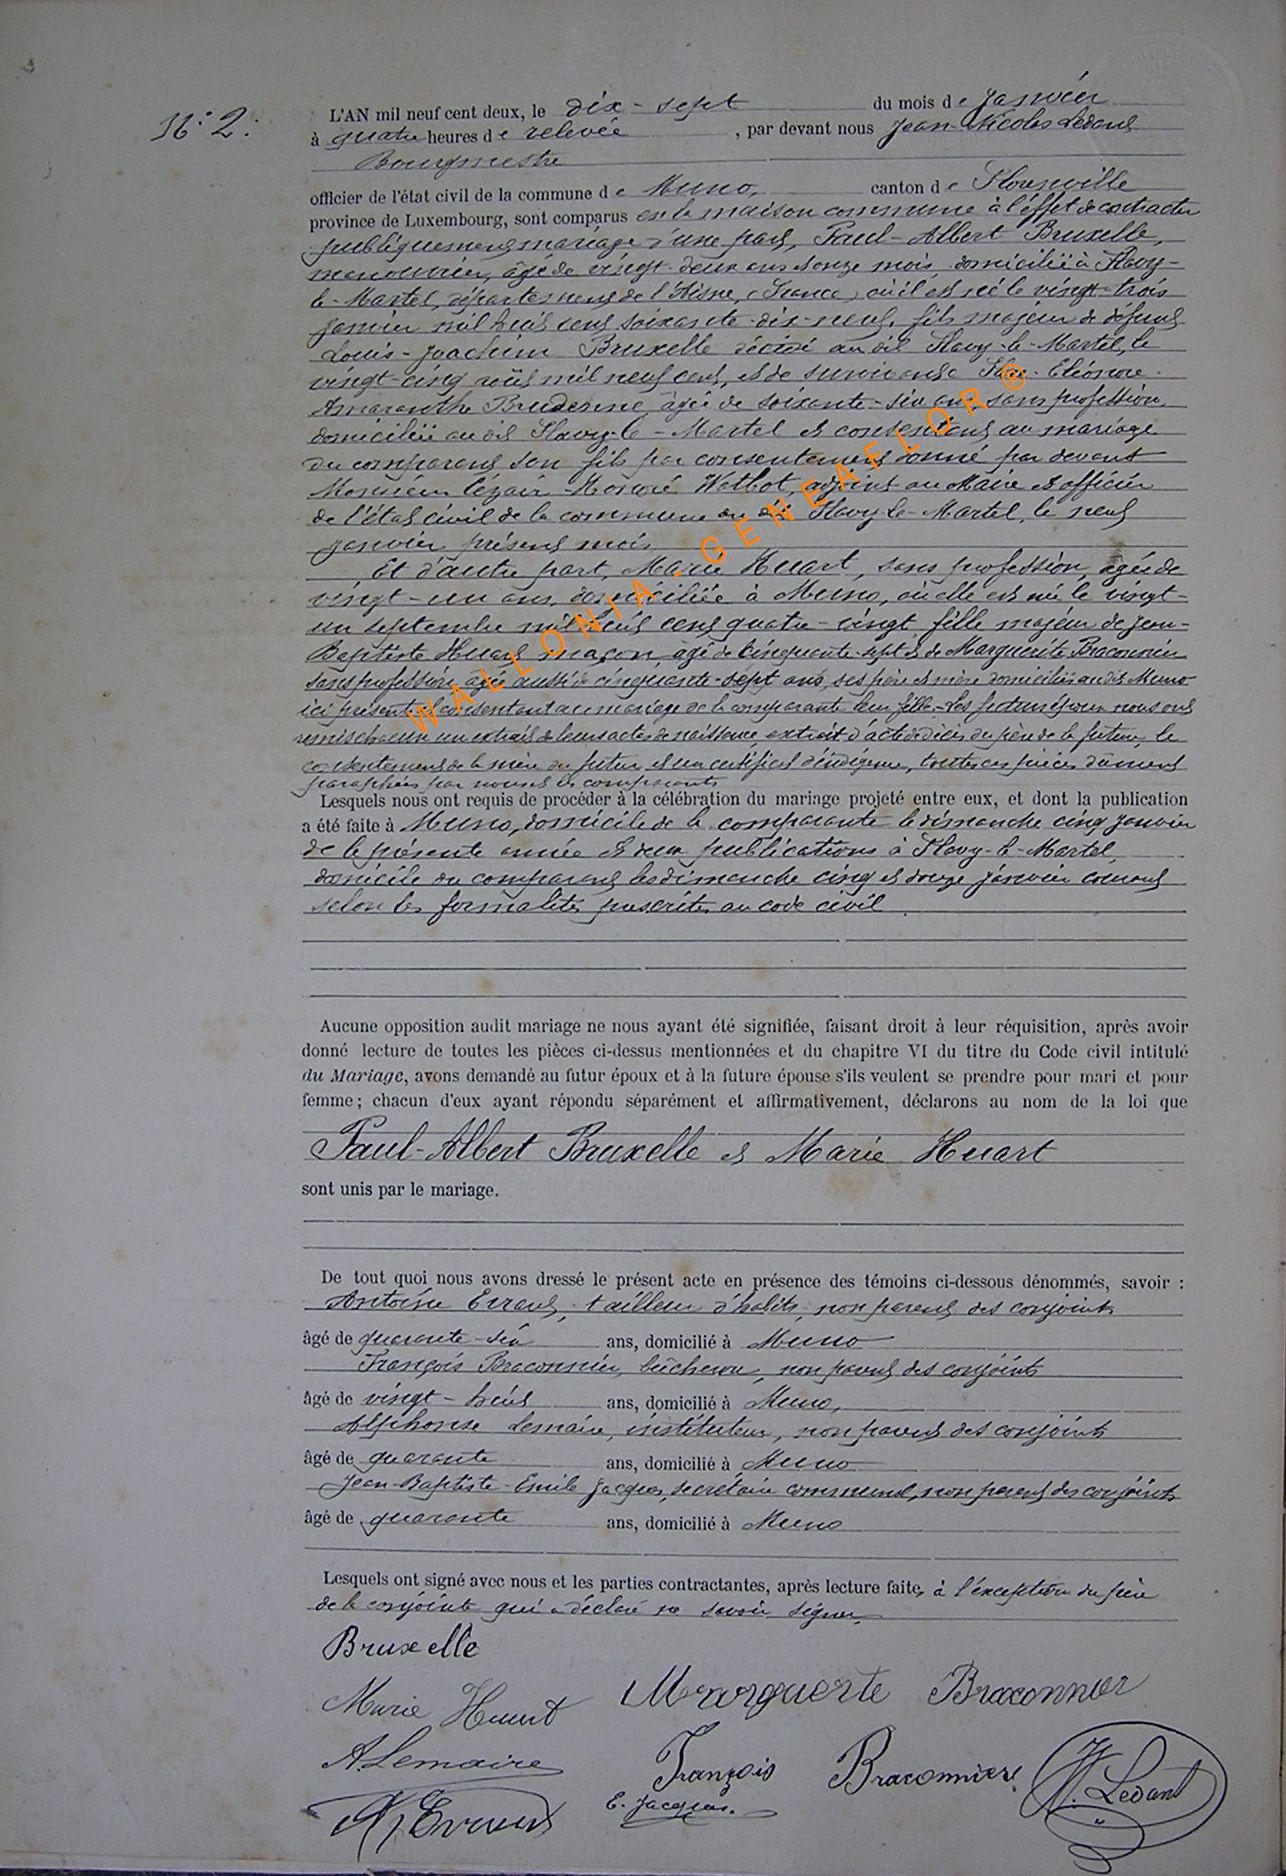 N° 2.
L'AN mil neuf cent deux, le dix-sept du mois de Janvier
à quatre heures de relevée, par devant nous Jean-Nicolas Ledant
Bourgmestre
officier de l'état civil de la commune de Muno, canton de Florenville
province de Luxembourg, sont comparus en la maison commune à l'effet de contracter
publiquement mariage d'une part, Paul-Albert Bruxelle,
manouvrier, âgé de vingt-deux ans et onze mois, domicilié à Flavy-
le-Martel, département de l'Aisne, (France) où il est né le vingt-trois
janvier mil huit cent soixante-dix-neuf, fils majeur de défunt
Louis-Joachim Bruxelle décédé au dit Flavy-le-Martel, le
vingt-cinq août mil neuf cent, et de survivante Eléonore-
Amaranthe âgée de soixante-six ans sans profession
domiciliée au dit Flavy-le-Martel et consentant au mariage
du comparant son fils par consentement donné par devant
Monsieur Honoré adjoint au Maire et officier
de l'état civil de la commune du dit Flavy-le-Martel, le neuf
janvier présent mois.
Et d'autre part, Marie Huart, sans profession, agée de
vingt-un ans, domiciliée à Muno, où elle est née le vingt-
un septembre mil huit cent quatre-vingt fille majeure de Jean-
Baptiste Huart maçon, agé de cinquante-sept et de Marguerite Braconnier
sans profession agée aussi de cinquante-sept ans, ses père et mère domiciliés au dit Muno
ici présents et consentant au mariage de la comparante leur fille. Les futurs époux nous ont
remis chacun un extrait de leurs actes de naissance, extrait d'acte de décès du père de la future, le
consentement de la mère du futur et un certificat d'indigence, toutes ces pièces dûment
paraphées par nous et les comparants
Lesquels nous ont requis de procéder à la célébration du mariage projeté entre eux, et dont la publication
a été faite à Muno, domicile de la comparante le dimanche cinq janvier
de la présente année et deux publications à Flavy-le-Martel,
domicile du comparant les dimanche cinq et douze janvier courant
selon les formalités prescrites au code civil
Aucune opposition audit mariage ne nous ayant été signifiée, faisant droit à leur réquisition, après avoir
donné lecture de toutes les pièces ci-dessus mentionnées et du chapitre VI du titre du Code civil intitulé
du Mariage, avons demandé au futur époux et à la future épouse s'ils veulent se prendre pour mari et pour
femme ; chacun d'eux ayant répondu séparément et affirmativement, déclarons au nom de la loi que
Paul-Albert Bruxelle et Marie Huart
sont unis par le mariage.
De tout quoi nous avons dressé le présent acte en présence des témoins ci-dessous dénommés, savoir :
Antoine Evrard, tailleur d'habits, non parent des conjoints
âgé de quarante-six ans, domicilié à Muno
François Braconnier, bûcheron, non parent des conjoints
âgé de vingt-huit ans, domicilié à Muno,
Alphonse Lemaire, instituteur, non parent des conjoints
âgé de quarante ans, domicilié à Muno
Jean-Baptiste-Emile Jacques, secrétaire communal, non parent des conjoints
âgé de quarante ans, domicilié à Muno
Lesquels ont signé avec nous et les parties contractantes, après lecture faite, à l'exception du père
de la conjointe qui a déclaré ne savoir signer.
Bruxelle
Marie Huart Marguerite Braconnier
A. Lemaire François Braconnier N. Ledant
E. Jacques.
WALLONIA-GENEAFLOR®